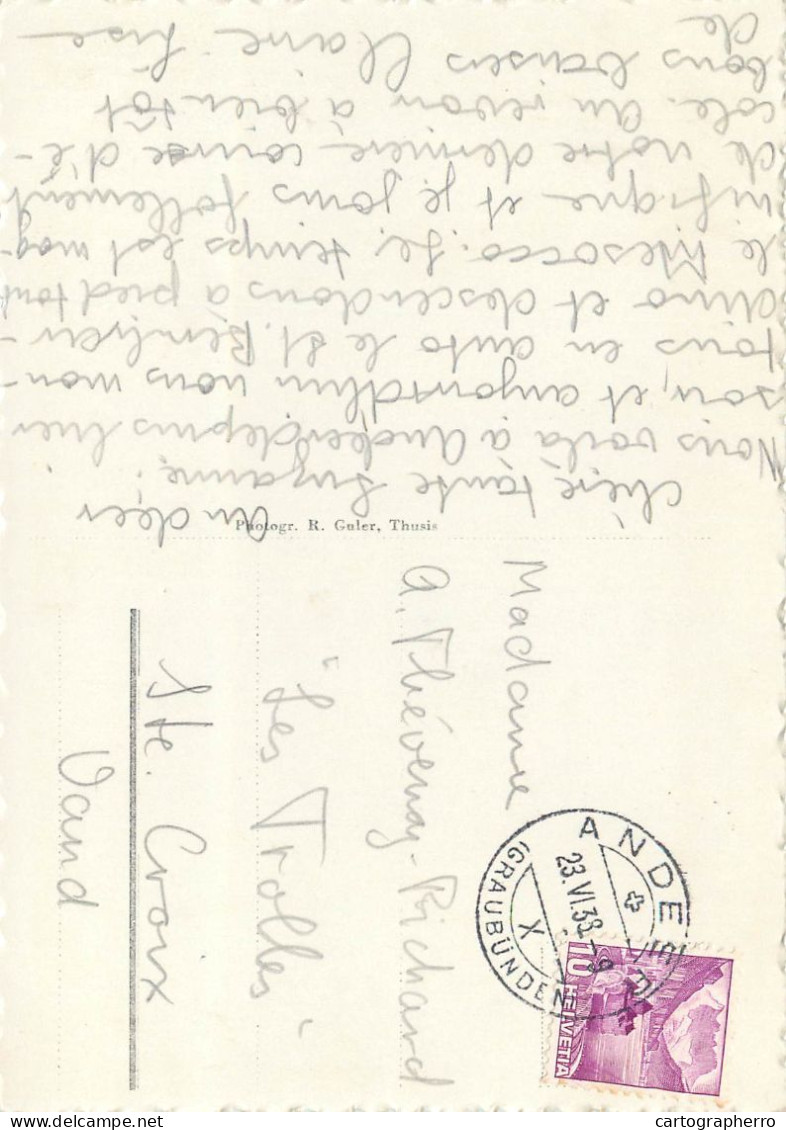 Andeer
chère tante Suzanne.
Nous voilà à Andeer depuis hier
soir, et aujourdhui nous mon-
tons en auto le St. Bernhar-
dino et descendons à pied tout
le Mesocco. Le temps est mag-
nifique et je jouis follement
de notre dernière course d'é-
cole. Au revoir à bientôt
bons baisers Claire Lise
de
Photogr. R. Guler, Thusis
Madame
A. Thévenaz-Richard
"Les Trolles"
Ste. Croix
Vaud
ANDEER
23.VI.38.-9
X
(GRAUBÜNDEN)
10 HELVETIA
cartographerro